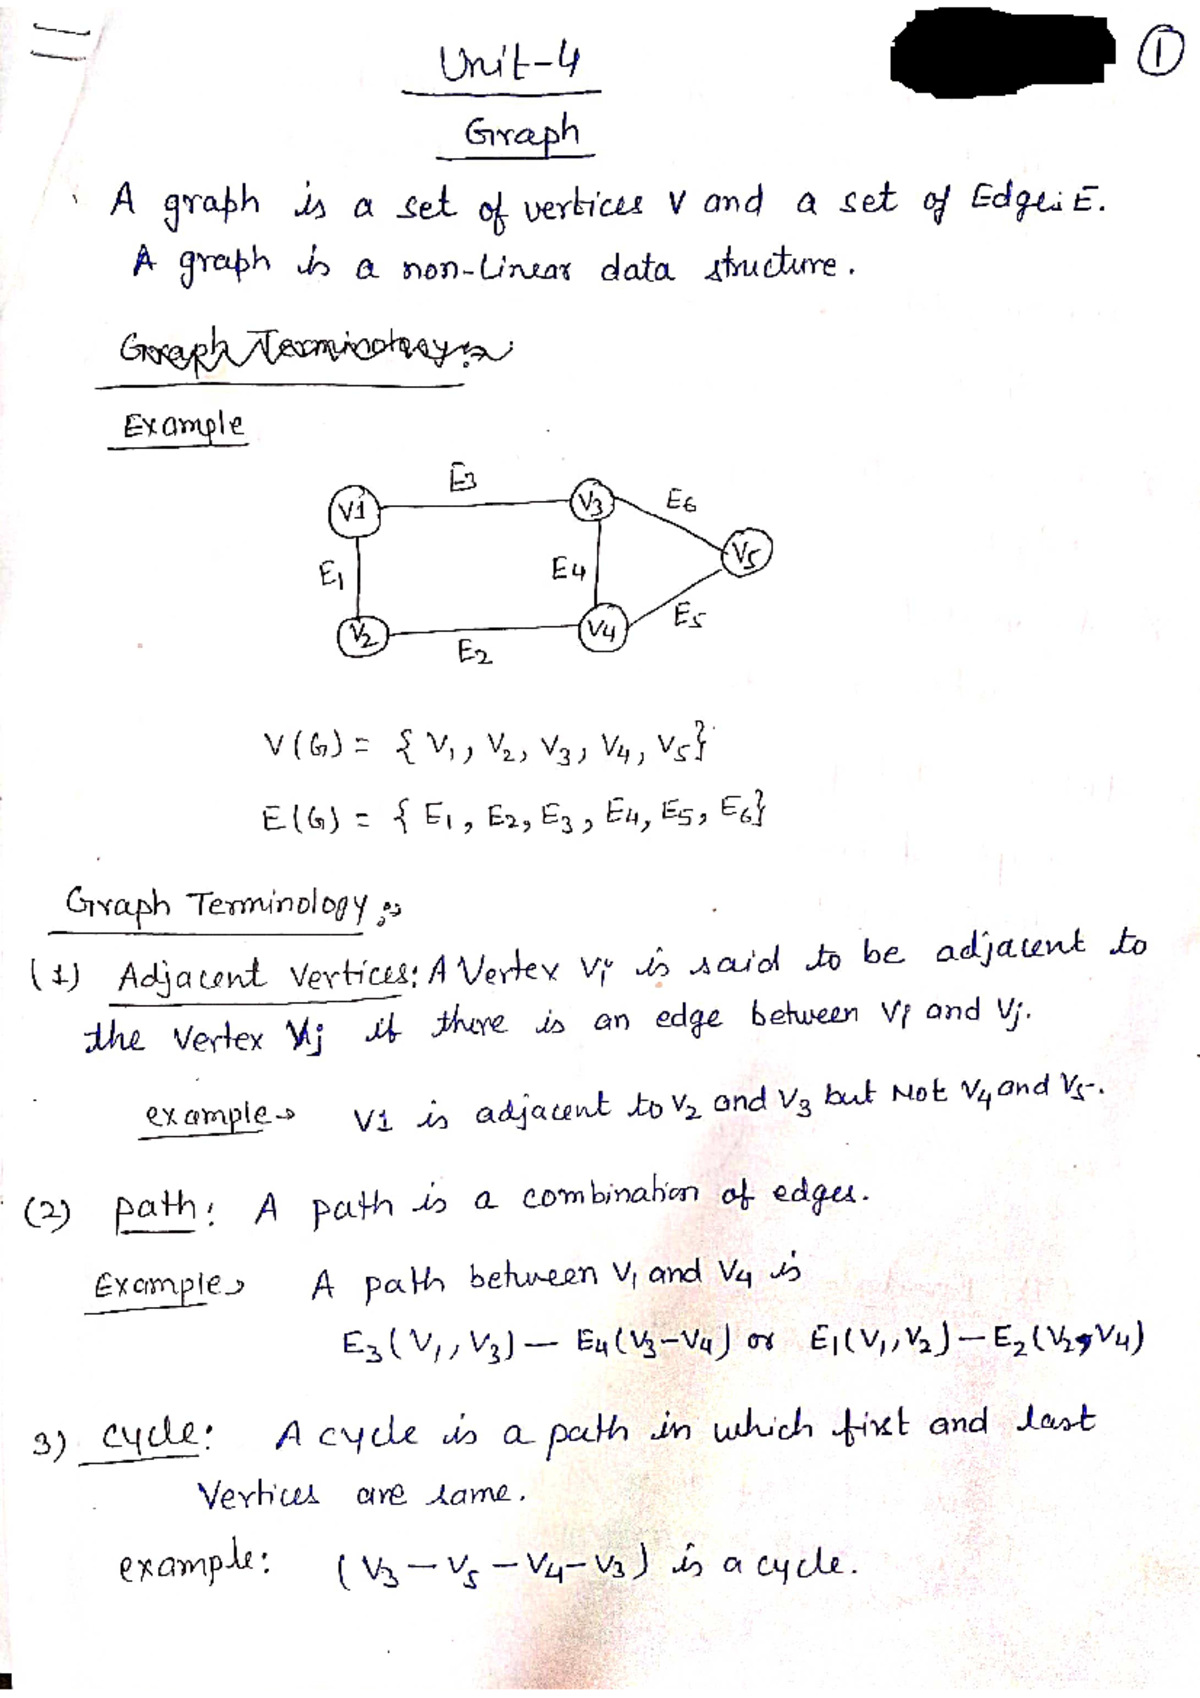 1
Unit-4
Graph
A graph is a set of vertices V and a set of Edges E.
A graph is a non-Linear data structure.
Graph Terminology:
Example
E3
V1
V3
E6
E1
E4
V5
V2
V4
E5
E2
V(G) = { V1, V2, V3, V4, V5}
E(G) = { E1, E2, E3, E4, E5, E6}
Graph Terminology:
(1) Adjacent Vertices: A Vertex Vi is said to be adjacent to
the Vertex Vj if there is an edge between Vi and Vj.
example→ V1 is adjacent to V2 and V3 but Not V4 and V5.
(2) path: A path is a combination of edges.
Example→ A path between V1 and V4 is
E3(V1, V3) — E4(V3-V4) or E1(V1, V2) — E2(V2, V4)
3) cycle: A cycle is a path in which first and last
Vertices are same.
example: (V3 - V5 - V4 - V3) is a cycle.